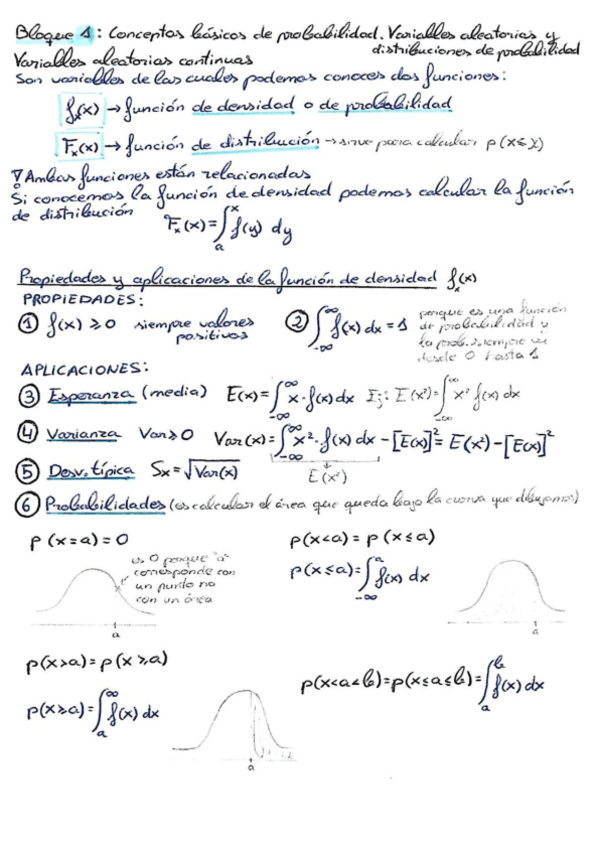 Bloque 1: Conceptos básicos de probabilidad. Variables aleatorias y
distribuciones de probabilidad
Variables aleatorias continuas
Son variables de las cuales podemos conocer dos funciones:
fx(x) → función de densidad o de probabilidad
Fx(x) → función de distribución → sirve para calcular p(x≤x)
Ambas funciones están relacionadas
Si conocemos la función de densidad podemos calcular la función
de distribución Fx(x)=∫ₐˣ f(y) dy
Propiedades y aplicaciones de la función de densidad fx(x)
PROPIEDADES:
① f(x) ≥ 0 siempre valores positivos
② ∫_{-∞}^{∞} f(x) dx = 1 porque es una función
de probabilidad y
la prob. siempre va
desde 0 hasta 1
APLICACIONES:
③ Esperanza (media) E(x)=∫_{-∞}^{∞} x·f(x) dx Ej: E(x²)=∫_{-∞}^{∞} x² f(x) dx
④ Varianza Var≥0 Var(x)=∫_{-∞}^{∞} x²·f(x) dx - [E(x)]² = E(x²) - [E(x)]²
⑤ Desv. típica Sx=√Var(x) E(x²)
⑥ Probabilidades (es calcular el área que queda bajo la curva que dibujamos)
p(x=a)=0
es 0 porque "a"
corresponde con
un punto no
con un área
a
p(x<a) = p(x≤a)
p(x≤a)=∫_{-∞}^{a} f(x) dx
a
p(x>a)=p(x≥a)
p(x≥a)=∫_{a}^{∞} f(x) dx
a
p(x<a<b)=p(x≤a≤b)=∫_{a}^{b} f(x) dx